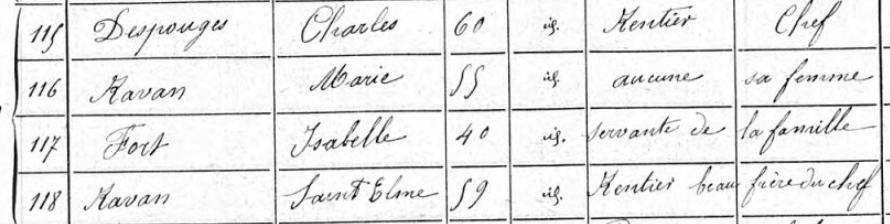 115 Despouges Charles 60 id. Rentier Chef
116 Ravan Marie 55 id. aucune sa femme
117 Fort Isabelle 40 id. servante de la famille
118 Ravan Saint Elme 59 id. Rentier beau frère du chef